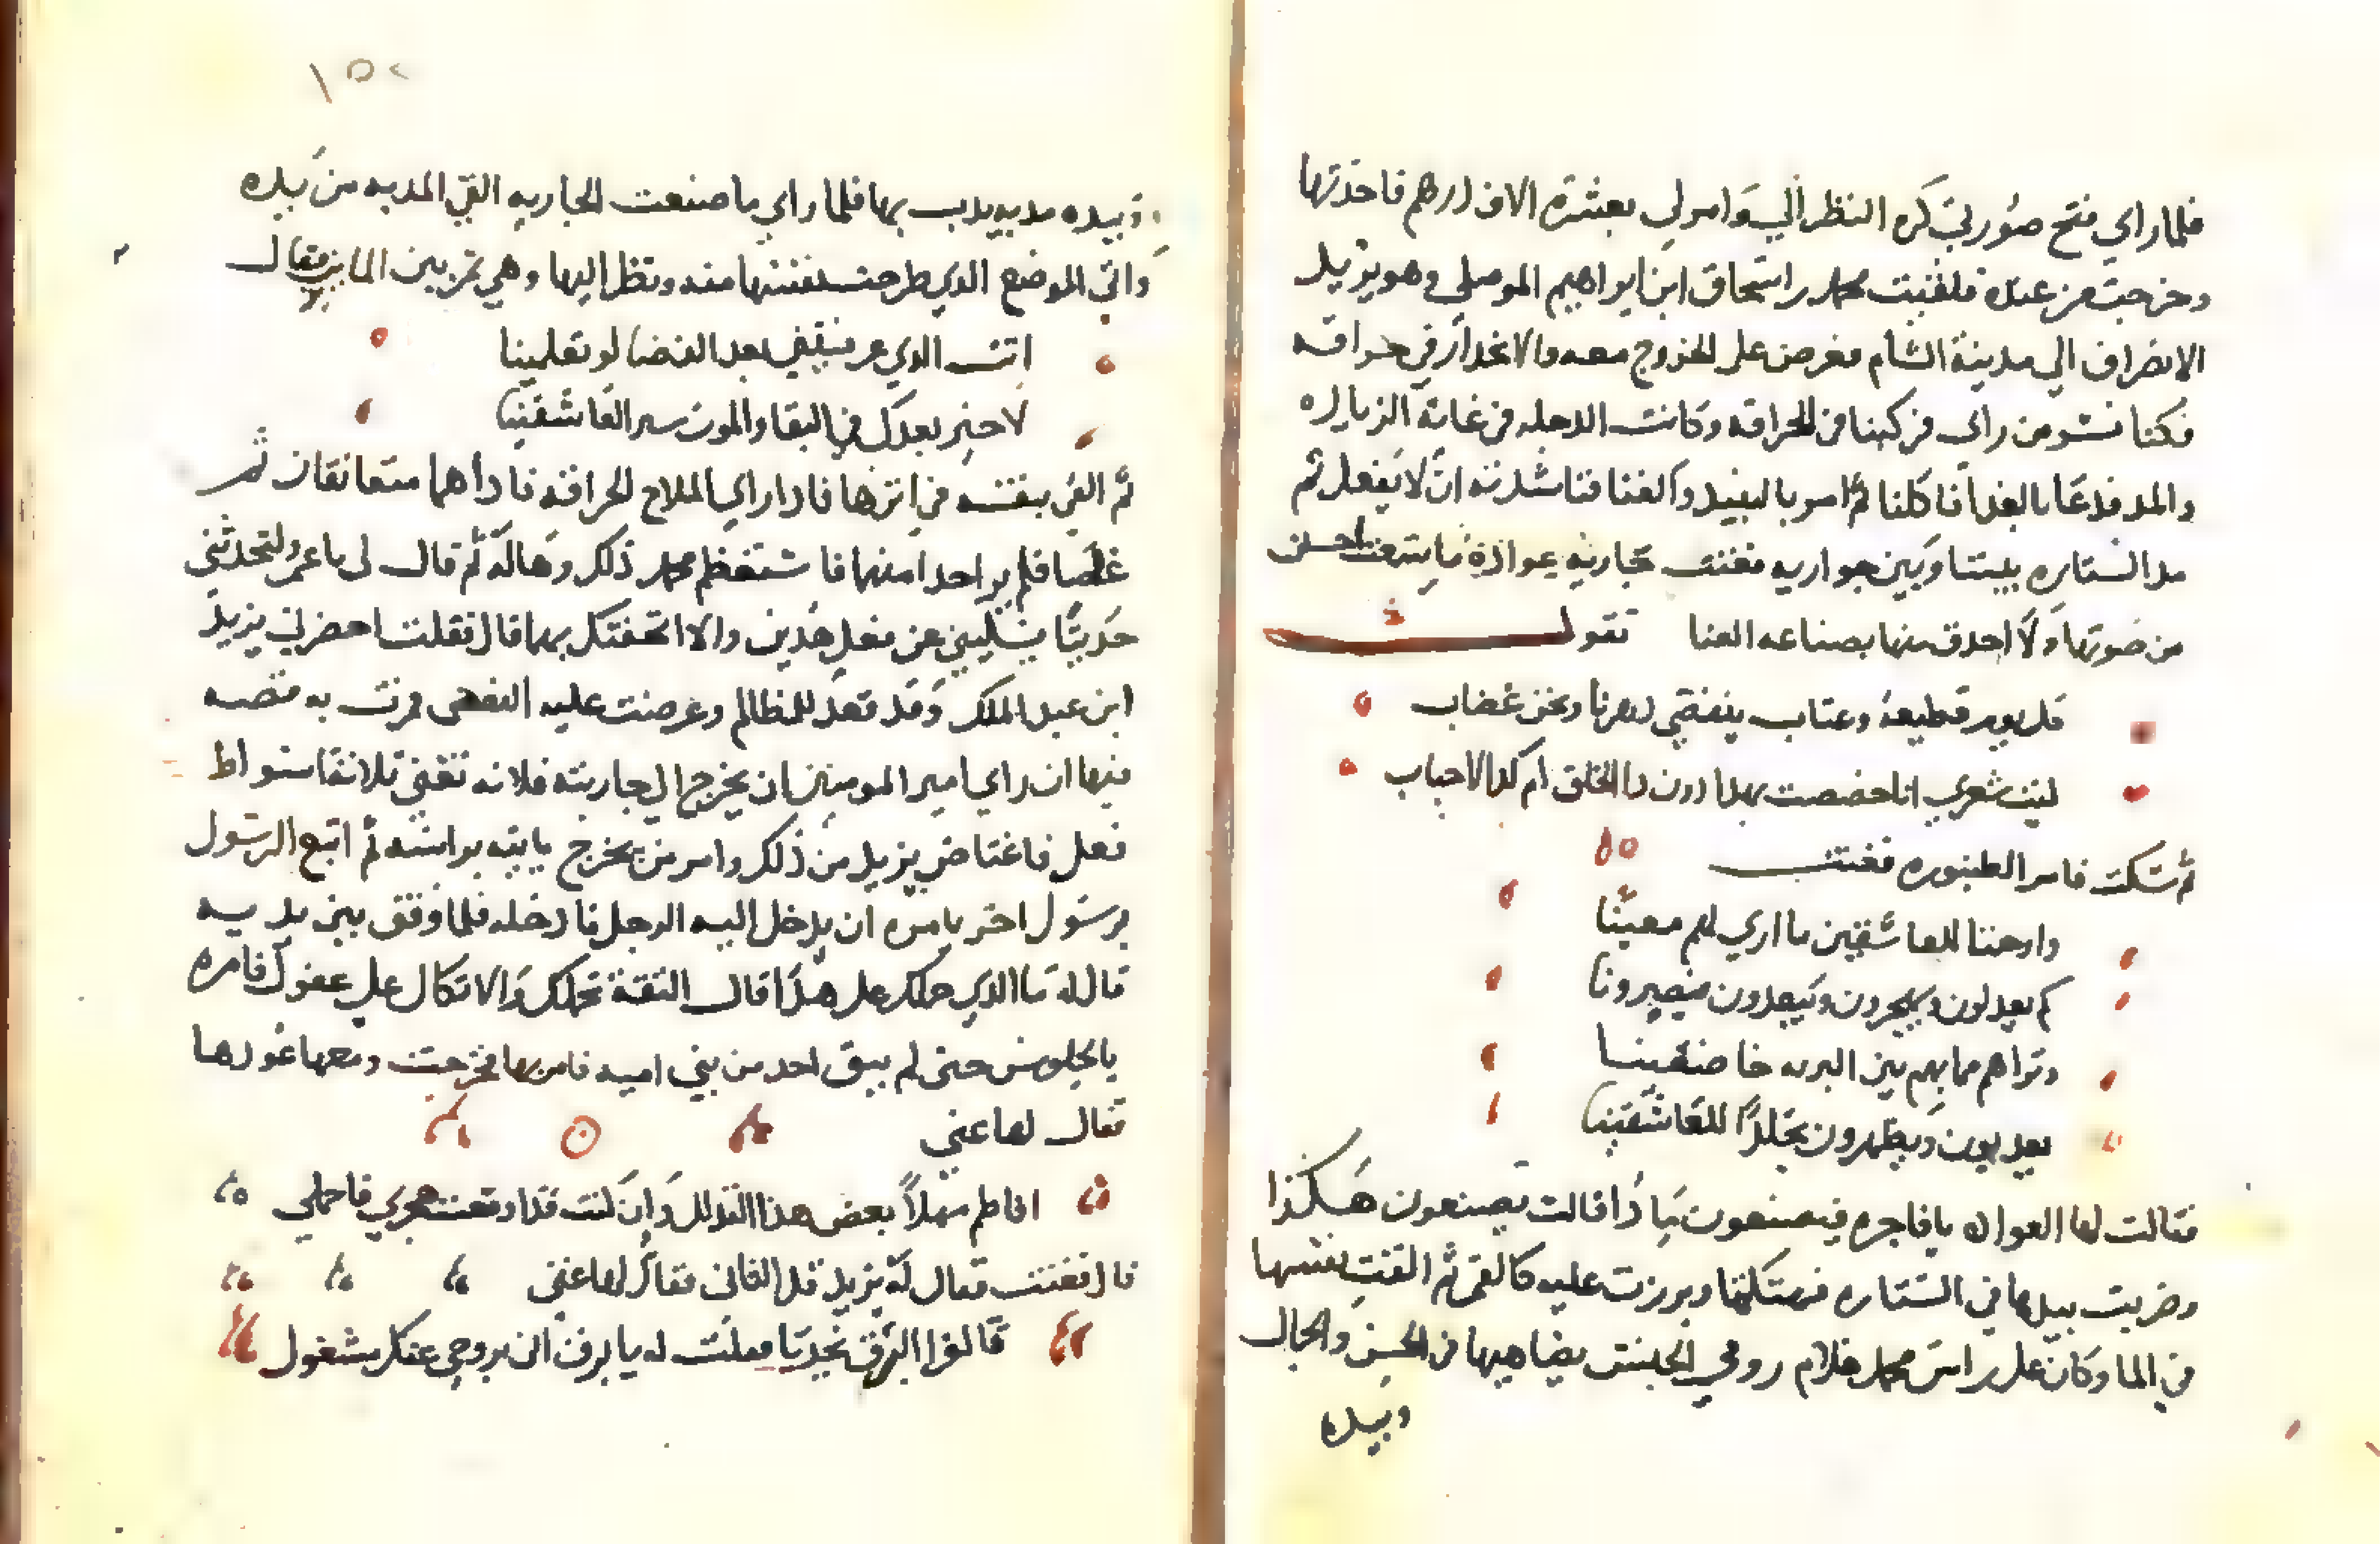 فلما راي فتح صورتي كره النظر الي وامر لي بعشرة الاف درهم فاخذتها
وخرجت من عنده فلقيت محمد بن اسحاق ابن ابراهيم الموصلي وهو يريد
الانصراف الي مدينة الشام فعرض علي الخروج معه والانحدار في حراقه
فكنا بسر من راي فركبنا في الحراقه وكانت الدجله في غاية الزياده
والمد فدعا بالغدا فاكلنا ثم امر بالنبيذ والغنا فناشدته ان لا يفعل ثم
مد الستاره بيننا وبين جواريه فغنت جاريه عواده ما سمعت احسن
من صوتها ولا احدق منها بصناعه الغنا تقول
كل يوم قطيعة وعتاب ينقضي دهرنا ونحن غضاب
ليت شعري انا خصصت بهدا دون دا الخلق ام كدا الاحباب
ثم سكتت فامر الطنبوره فغنت
وارحمتا للعاشقين ما اري لهم معينا
كم يعدلون ويهجرون ويبعدون فيصبرونا
وتراهم مما بهم بين البريه خاضعينا
يعدبون ويظهرون تجلدا للعاشقينا
فقالت لها العواده يا فاجره فيصنعون مادا قالت يصنعون هكذا
وضربت بيدها في الستاره فهتكتها وبرزت عليه كالقمر ثم القت بنفسها
في الما وكان علي راس محمد غلام رومي الجنس يضاهيها في الحسن والجمال
وبيده
١٥٢
وبيده مدبه يدب بها فلما راي ما صنعت الجاريه القي المدبه من يده
واتي الموضع الدي طرحت نفسها منه ونظر اليها وهي تمر بين الماين فقال
انت الدي عرفتني بعد القضا لو تعلمينا
لا خير بعدك في البقا والموت ستر العاشقينا
ثم القي بنفسه في اثرها فادار الملاح الحراقه فاداهما متعانقان ثم
غطسا فلم ير احدا منهما فاستعظم محمد ذلك وهاله ثم قال لي يا عمرو لتحدثني
حديثا يسليني عن فعل هذين والا الحقتك بهما قال فقلت احضر لي يزيد
ابن عبد الملك وقد قعد للمظالم وعرضت عليه القصص فمرت به قصه
فيها ان راي امير المومنين ان يخرج الي جاريته فلانه تغني ثلاثة اصواط
فعل فاغتاض يزيد من ذلك وامر من يخرج ياتيه براسه ثم اتبع الرسول
برسول اخر يامره ان يدخل اليه الرجل فادخله فلما وقف بين يديه
قال له ما الدي حملك علي هذا قال الثقة بحلمك والاتكال علي عفوك فامره
بالجلوس حتى لم يبق احد من بني اميه فامر بها فخرجت ومعها عودها
فقال لها غني
افاطم مهلا بعض هذا التدلل وان كنت قد ازمعت هجري فاجملي
قال فغنت فقال له يزيد قل الثاني فقال لها غني
تالق البرق نجديا فقلت له يا برق اني بروحي عنك مشغول